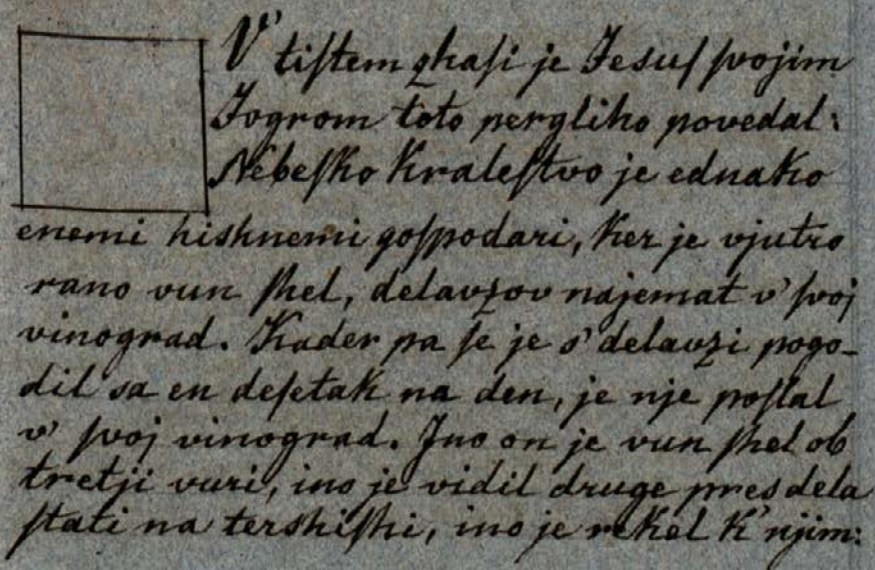 V' tiſtem zhaſi je Jesuſ ſvojim
Jogrom toto pergliho povedal:
Nebeſko Kraleſtvo je ednako
enemi hishnemi goſpodari, ker je vjutro
rano vun ſhel, delavzov najemat v' ſvoj
vinograd. Kader pa ſe je s' delavzi pogo-
dil sa en deſetak na den, je nje poſlal
v' ſvoj vinograd. Ino on je vun ſhel ob
tretji vuri, ino je vidil druge pres dela
ſtati na tershiſhi, ino je rekel k' njim: